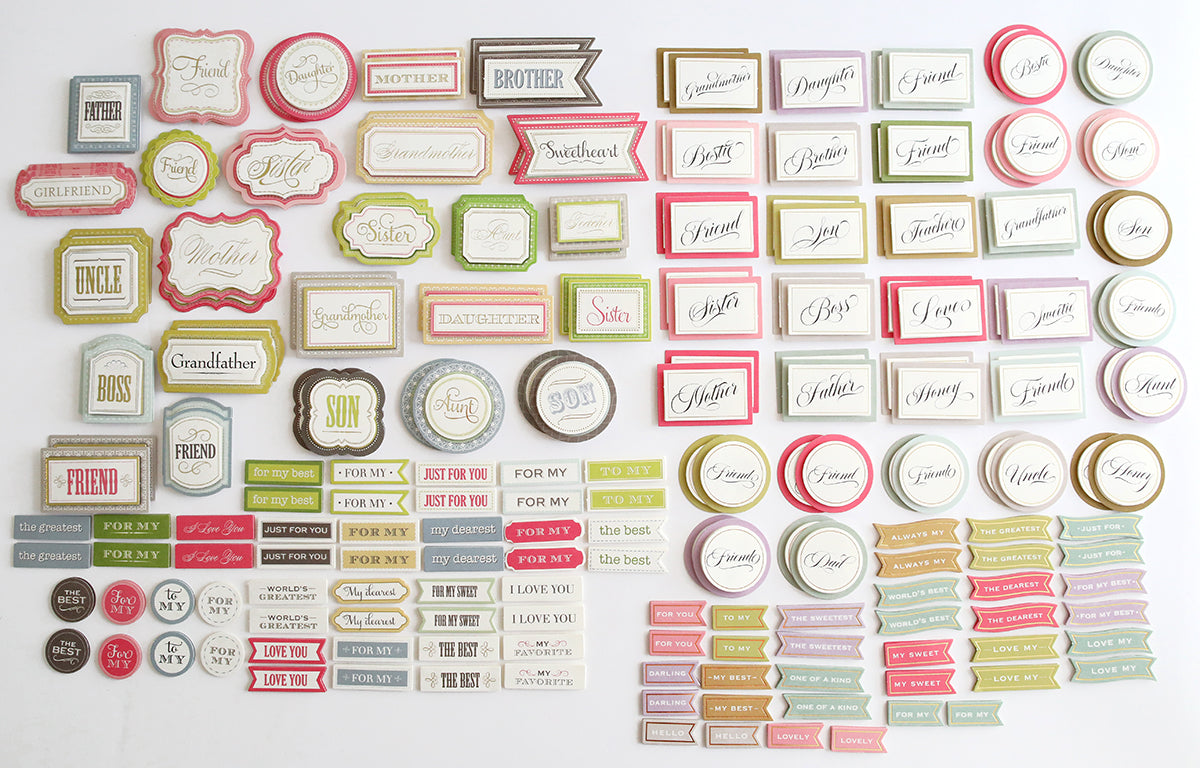 Friend
Daughter
MOTHER
BROTHER
FATHER
Friend
Sister
Grandmother
Sweetheart
GIRLFRIEND
Mother
Sister
Aunt
UNCLE
Grandmother
DAUGHTER
Sister
BOSS
Grandfather
SON
Aunt
SON
FRIEND
FRIEND
for my best
FOR MY
JUST FOR YOU
FOR MY
TO MY
for my best
FOR MY
JUST FOR YOU
FOR MY
TO MY
the greatest
FOR MY
I Love You
JUST FOR YOU
FOR MY
my dearest
FOR MY
the best
the greatest
FOR MY
I Love You
JUST FOR YOU
FOR MY
my dearest
FOR MY
the best
THE BEST
For MY
to MY
FOR MY
WORLD'S GREATEST
My dearest
FOR MY SWEET
I LOVE YOU
WORLD'S GREATEST
My dearest
FOR MY SWEET
I LOVE YOU
THE BEST
For MY
to MY
FOR MY
LOVE YOU
FOR MY
THE BEST
MY FAVORITE
LOVE YOU
FOR MY
THE BEST
MY FAVORITE
Grandmother
Daughter
Friend
Bestie
Daughter
Bestie
Brother
Friend
Friend
Mom
Friend
You
Teacher
Grandfather
Son
Sister
Boss
Love
Sweetie
Friends
Mother
Father
Honey
Friends
Aunt
Friends
Friend
Friends
Uncle
Dance
Friends
Dad
ALWAYS MY
THE GREATEST
JUST FOR
ALWAYS MY
THE GREATEST
JUST FOR
WORLD'S BEST
THE DEAREST
FOR MY BEST
WORLD'S BEST
THE DEAREST
FOR MY BEST
FOR YOU
TO MY
THE SWEETEST
FOR YOU
TO MY
THE SWEETEST
MY SWEET
LOVE MY
LOVE MY
MY SWEET
LOVE MY
LOVE MY
DARLING
MY BEST
ONE OF A KIND
DARLING
MY BEST
ONE OF A KIND
FOR MY
FOR MY
HELLO
HELLO
LOVELY
LOVELY